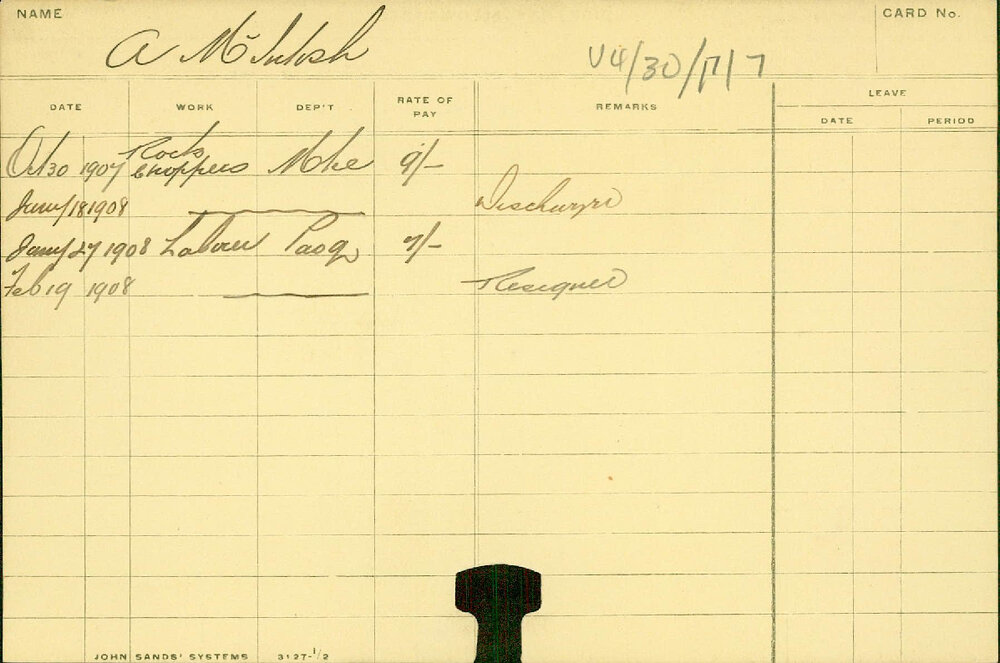 NAME
CARD No.
A McIntosh
V4/30/17/7
DATE WORK DEP'T RATE OF PAY REMARKS LEAVE
DATE PERIOD
Oct 30 1907 Rock choppers Mke 9/-
Jany 18 1908 Discharged
Jany 27 1908 Labourer 7/-
Feb 19 1908 Resigned
JOHN SANDS' SYSTEMS 3127-1/2